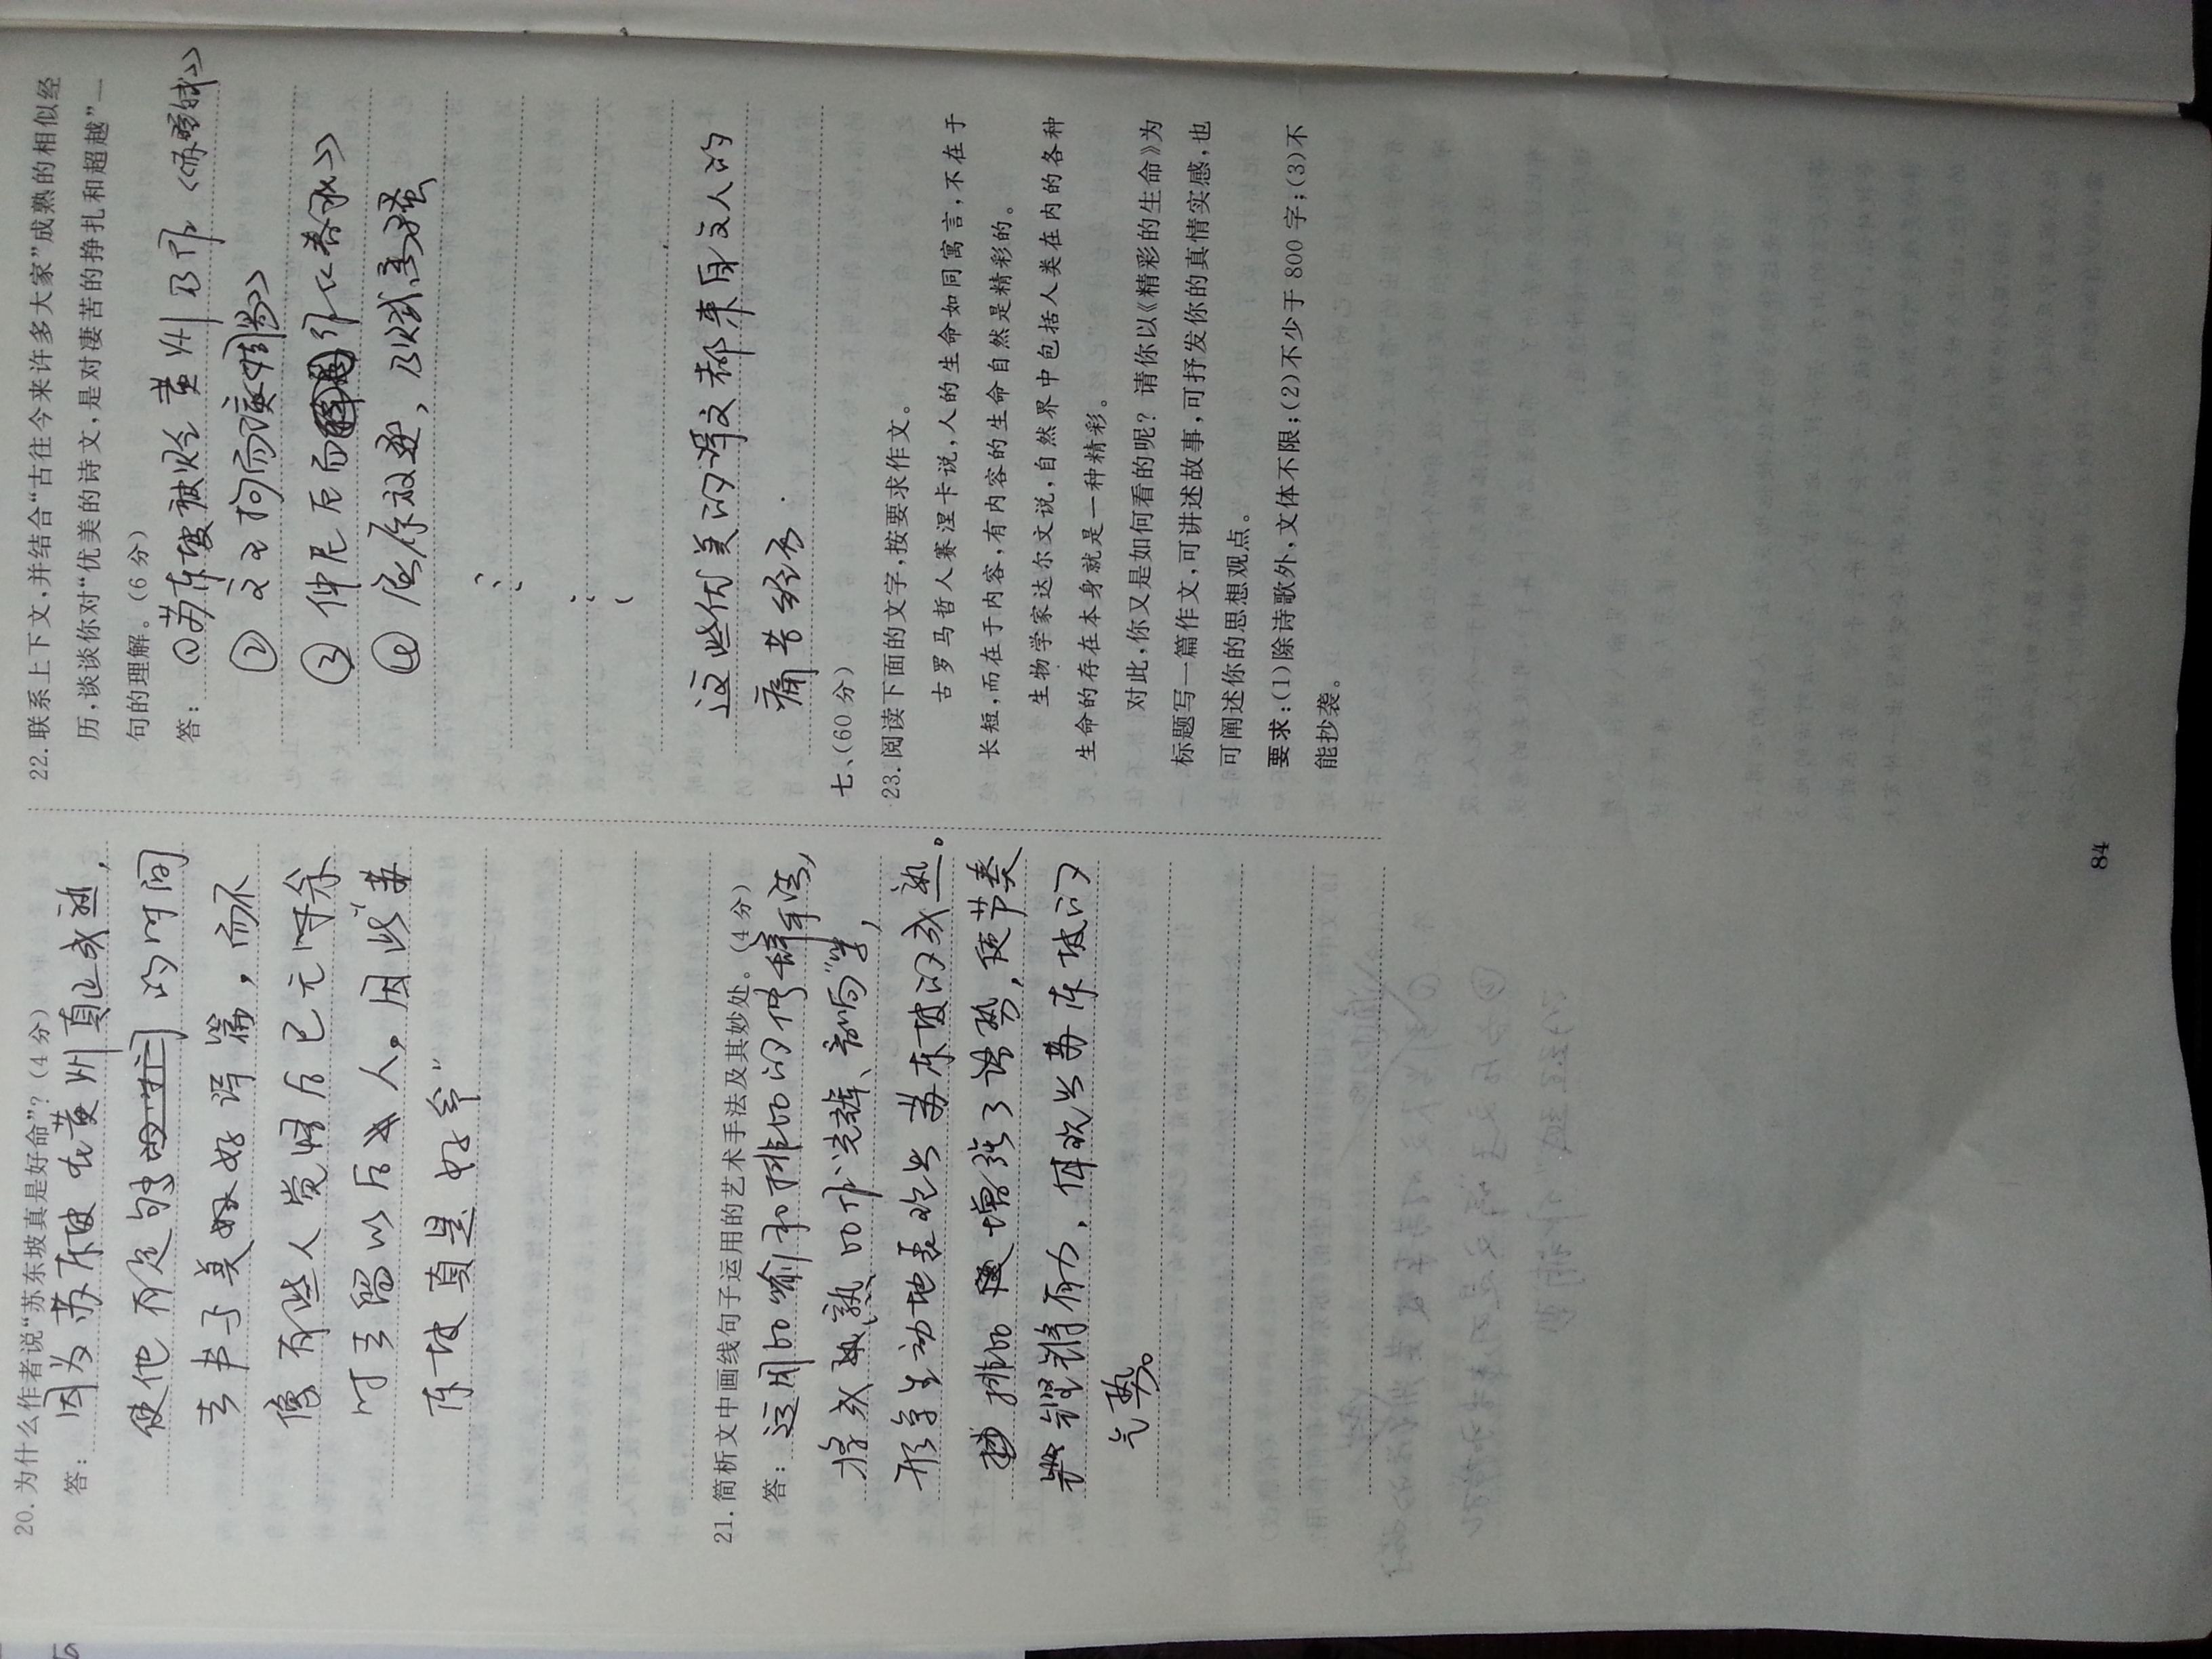 20. 为什么作者说“苏东坡真是好命”?(4分)
答: 因为苏东坡在黄州真正成熟,
使他有足够的时间
去书写美好诗篇,而不
像有些人觉悟后已无时余
时去留以后人。因此“苏
东坡真是好命”
21. 简析文中画线句子运用的艺术手法及其妙处。(4分)
答: 运用比喻和排比的修辞手法,
将成熟比作“光辉、音响”等,
形象生动地表现出苏东坡的成熟。
排比增强了语势,使节奏
铿锵有力,体现出苏东坡的
气势。
22. 联系上下文,并结合“古往今来许多大家”成熟的相似经
历,谈谈你对“优美的诗文,是对凄苦的挣扎和超越”一
句的理解。(6分)
答: ①苏东坡被贬黄州乃作《赤壁赋》
② 文王拘而演《周易》
③ 仲尼厄而作《春秋》
④ 屈原放逐,乃赋离骚
这些优美的诗文都来自文人的
痛苦经历.
七、(60分)
23. 阅读下面的文字,按要求作文。
古罗马哲人赛涅卡说,人的生命如同寓言,不在于
长短,而在于内容,有内容的生命自然是精彩的。
生物学家达尔文说,自然界中包括人类在内的各种
生命的存在本身就是一种精彩。
对此,你又是如何看的呢? 请你以《精彩的生命》为
标题写一篇作文,可讲述故事,可抒发你的真情实感,也
可阐述你的思想观点。
要求:(1)除诗歌外,文体不限;(2)不少于 800 字;(3)不
能抄袭。
84